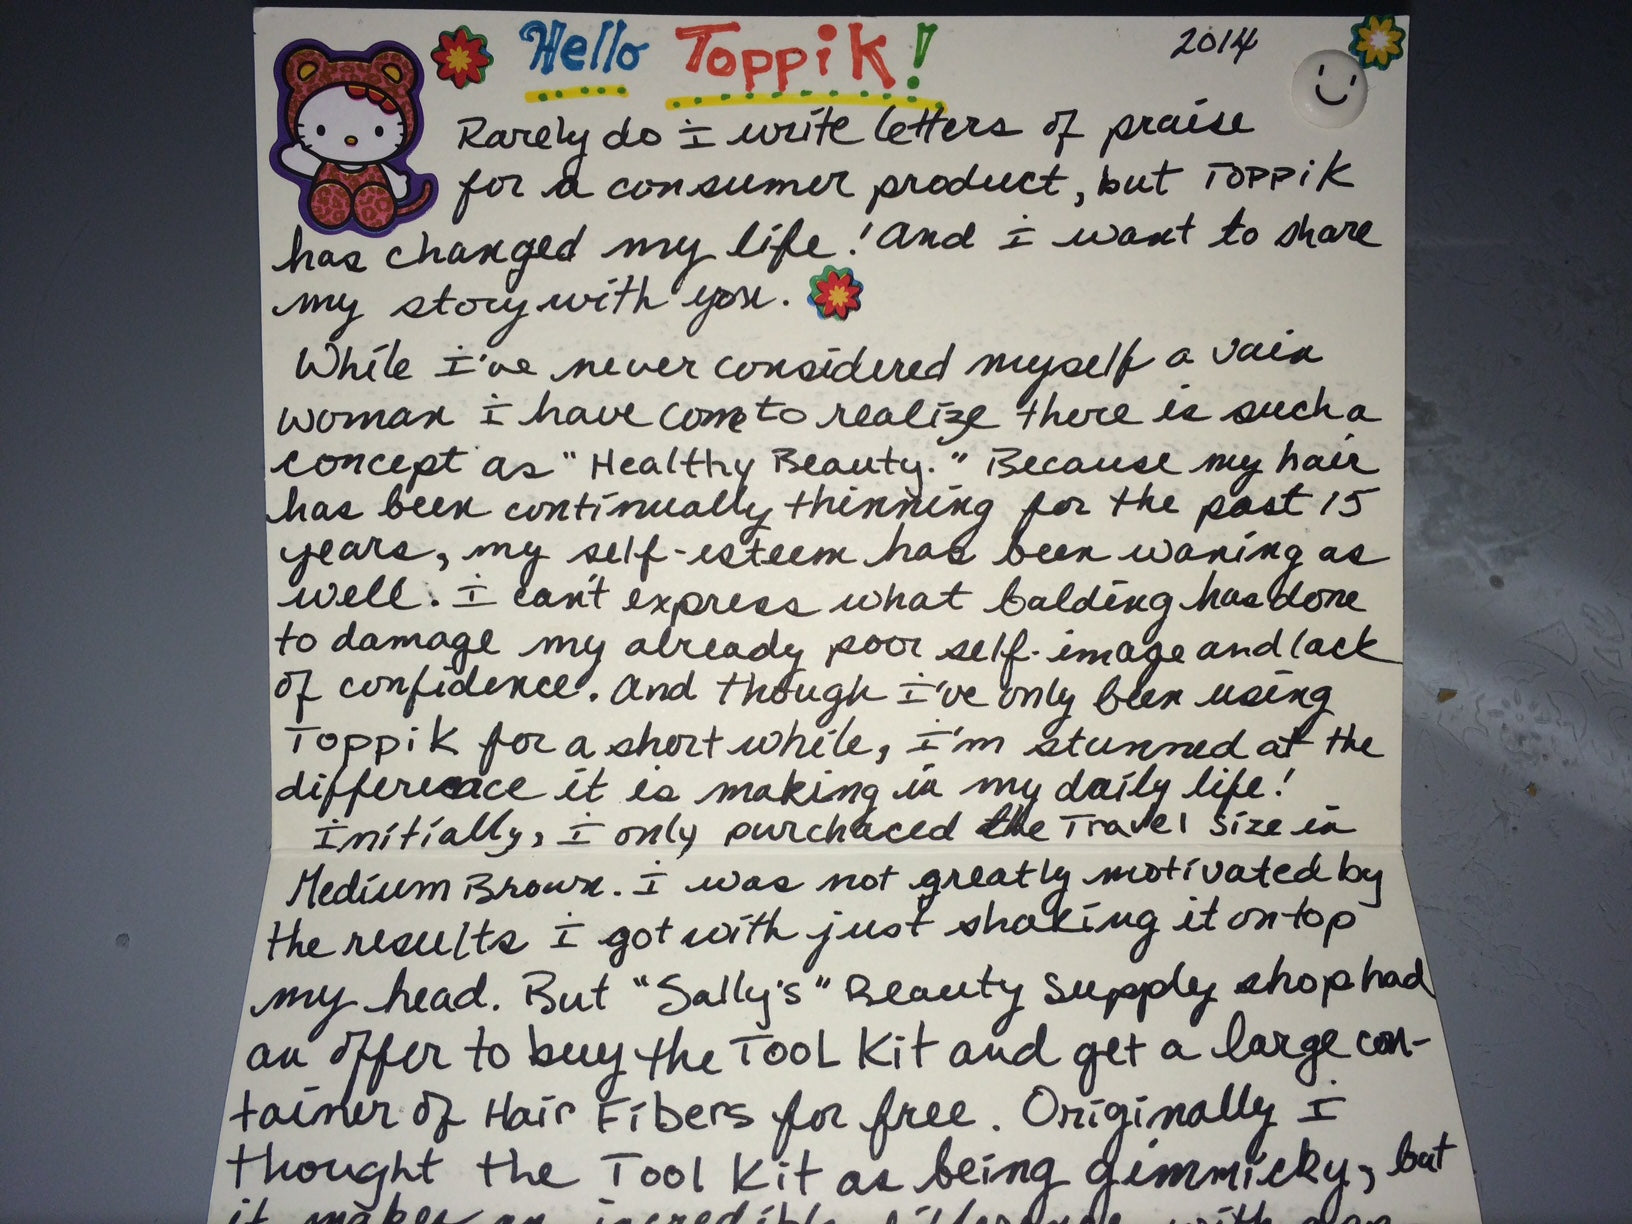 Hello Toppik!
2014
Rarely do i write letters of praise
for a consumer product, but TOPPiK
has changed my life! And i want to share
my story with you.
While i've never considered myself a vain
woman i have come to realize there is such a
concept as "Healthy Beauty." Because my hair
has been continually thinning for the past 15
years, my self-esteem has been waning as
well. i can't express what balding has done
to damage my already poor self-image and lack
of confidence. And though i've only been using
Toppik for a short while, i'm stunned at the
difference it is making in my daily life!
initially, i only purchaced the Travel Size in
Medium Brown. i was not greatly motivated by
the results i got with just shaking it on top
my head. But "Sally's" Beauty Supply shop had
an offer to buy the TOOL Kit and get a large con-
tainer of Hair Fibers for free. Originally i
thought the Tool Kit as being gimmicky, but
it makes an incredible difference with